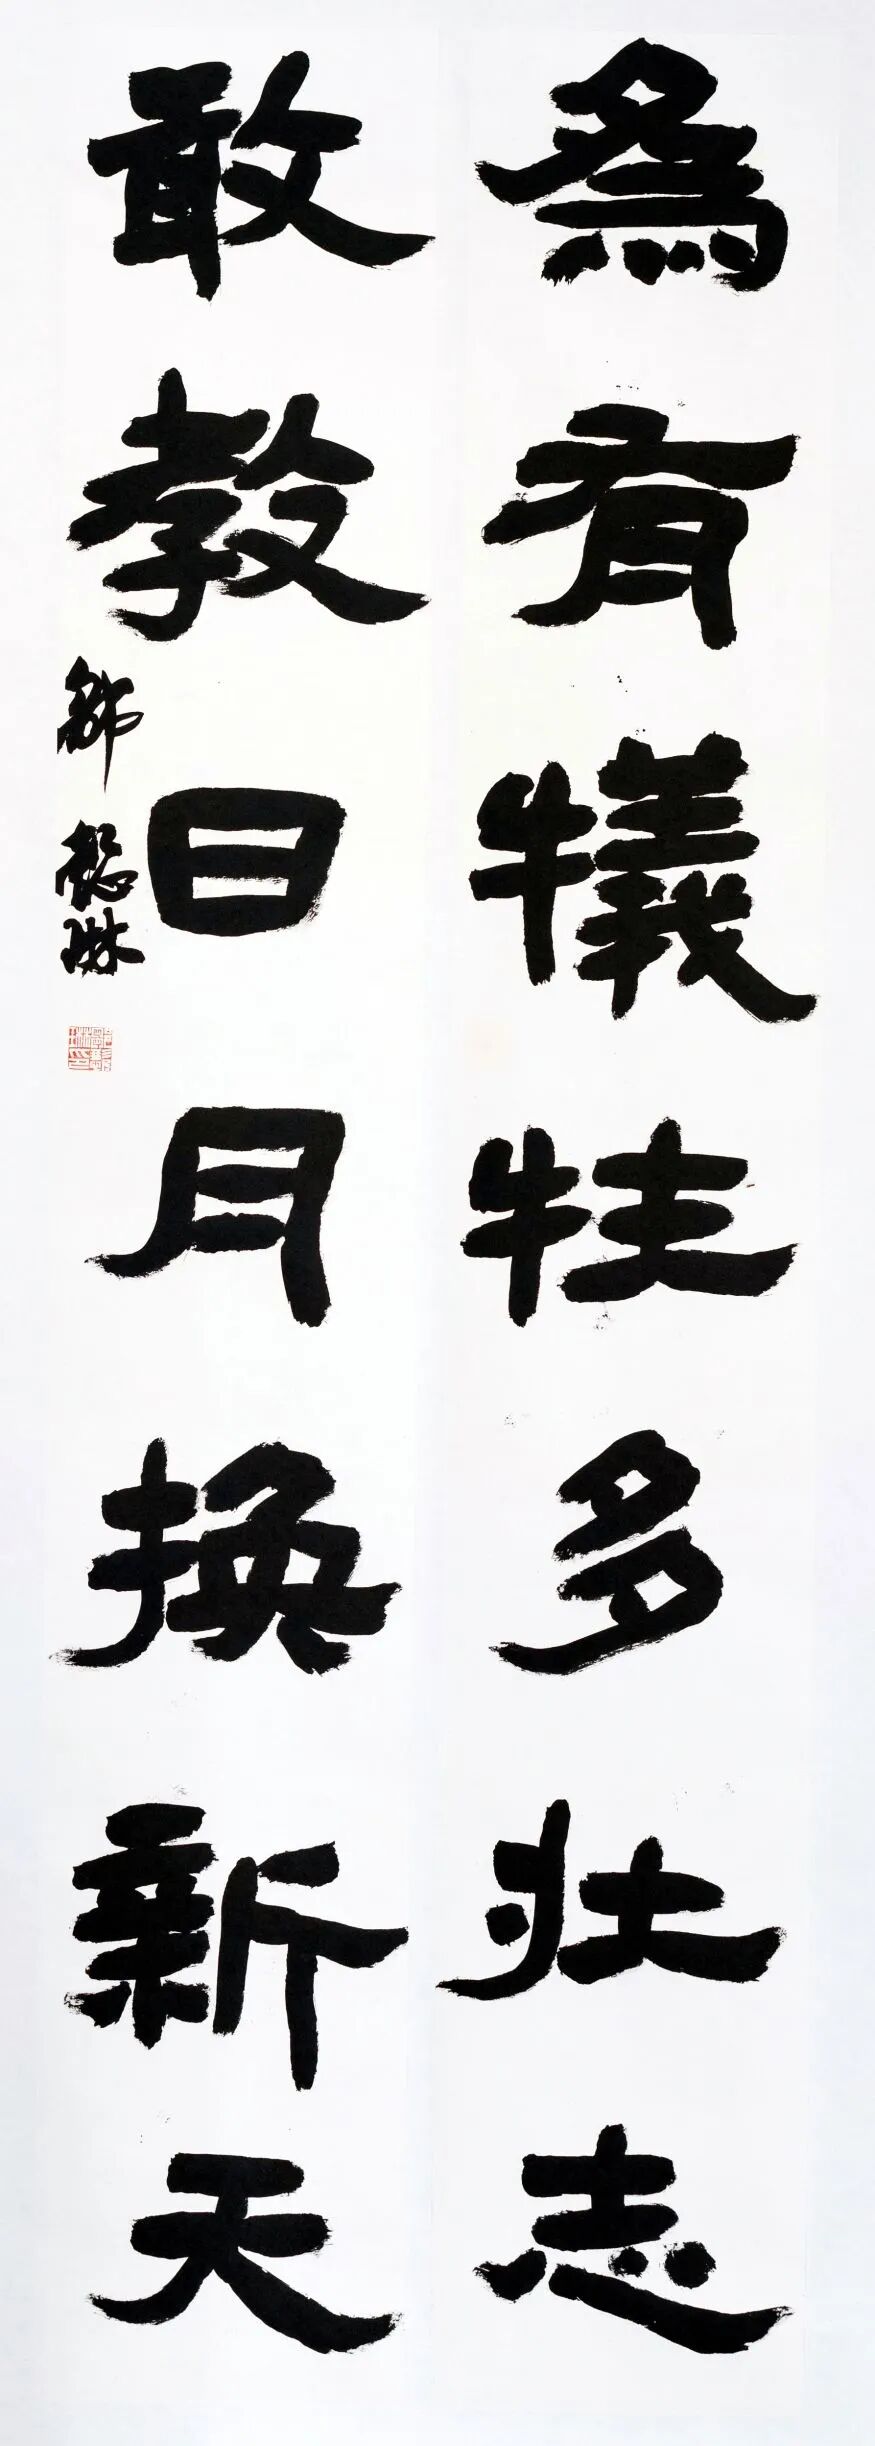 為有犧牲多壯志
敢教日月換新天
懿琳